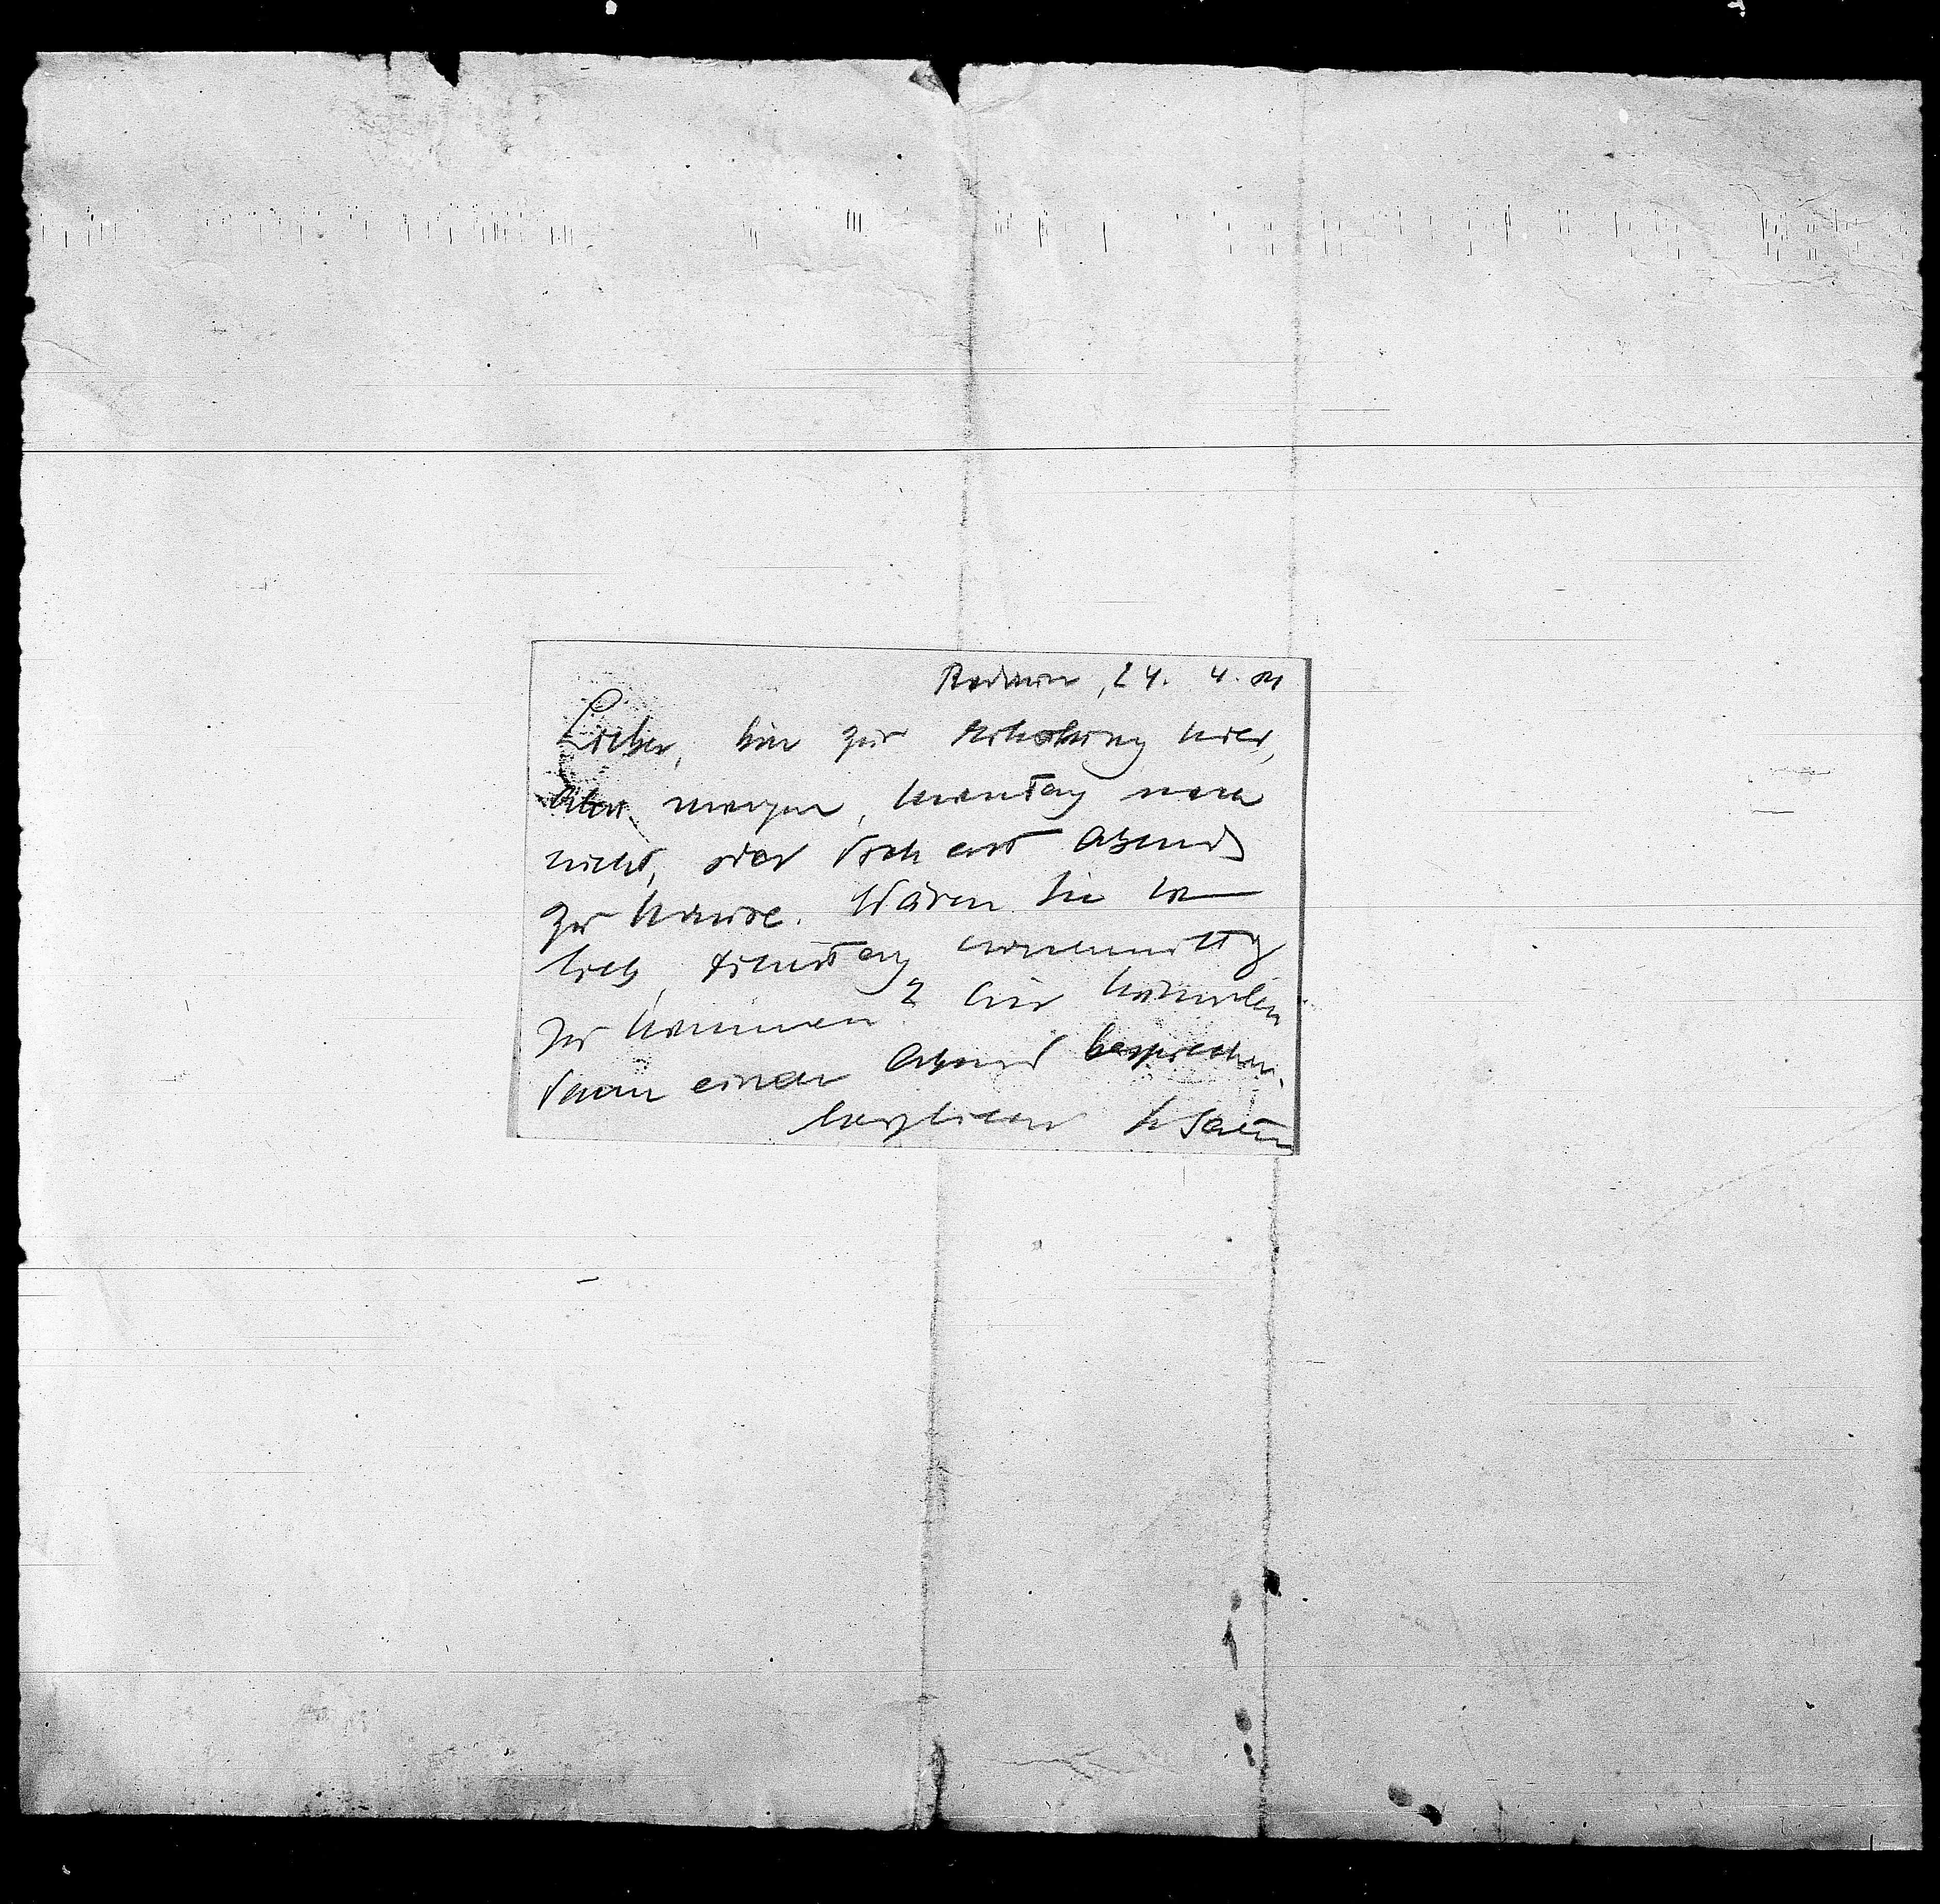 Rodaun, 24. 4. 04
Lieber, bin zur Erholung hier,
aber morgen, Montag noch
nicht, oder doch erst Abends
zu Hause. Wären Sie so
lieb, Dienstag nachmittg
zu kommen? Wir könnten
dann einen Abend besprechen.
herzlichst Ihr Salten